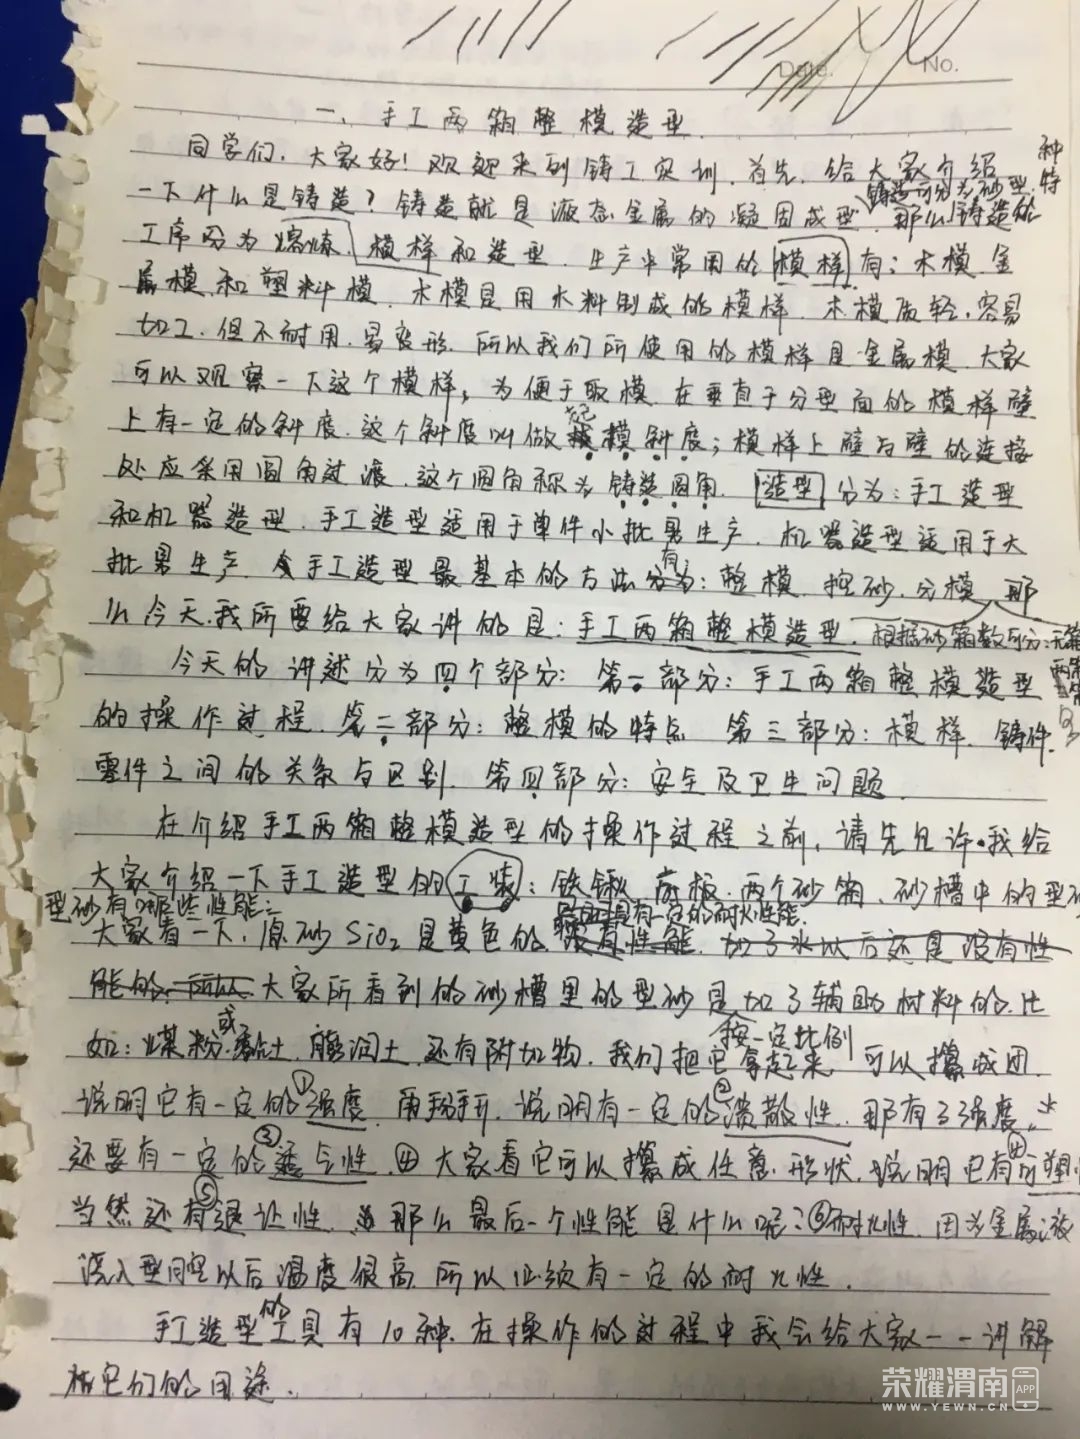 Date. No.
一、手工两箱整模造型
同学们,大家好!欢迎来到铸工实训,首先,给大家介绍
一下什么是铸造?铸造就是液态金属的凝固成型,那么铸造的
铸造可分为砂型、特种
工序分为熔炼、模样和造型,生产中常用的模样有:木模、金
属模和塑料模,木模是用木料制成的模样,木模质轻,容易
加工,但不耐用,易变形,所以我们所使用的模样是金属模,大家
可以观察一下这个模样,为便于取模,在垂直于分型面的模样壁
上有一定的斜度,这个斜度叫做起模斜度;模样上壁与壁的连接
处应采用圆角过渡,这个圆角称为铸造圆角,造型分为:手工造型
和机器造型,手工造型适用于单件小批量生产,机器造型适用于大
批量生产,手工造型最基本的方法有:整模、挖砂、分模,那
么今天,我所要给大家讲的是:手工两箱整模造型,根据砂箱数可分:无箱
两箱
今天的讲述分为四个部分:第一部分:手工两箱整模造型
的操作过程,第二部分:整模的特点 第三部分:模样、铸件、
零件之间的关系与区别,第四部分:安全及卫生问题
在介绍手工两箱整模造型的操作过程之前,请先允许我给
大家介绍一下手工造型的工装:铁锹、底板、两个砂箱、砂槽中的型砂
型砂有哪些性能:
具有一定的耐火性能
大家看一下,原砂SiO2是黄色的没有性能,加了水以后还是没有性
能的,所以大家所看到的砂槽里的型砂是加了辅助材料的,比
如:煤粉或黏土、膨润土,还有附加物,我们把它拿起来,可以攥成团,
按一定比例
说明它有一定的①强度,用手掰开,说明有一定的②溃散性,那有了强度,
还要有一定的③透气性,④大家看它可以攥成任意形状,说明它有④可塑性
当然还有⑤退让性,那么最后一个性能是什么呢?⑥耐火性,因为金属液
浇入型腔以后温度很高,所以必须有一定的耐火性,
手工造型的工具有10种,在操作的过程中我会给大家一一讲解
它们的用途,
荣耀渭南 APP
WWW.YEWN.CN